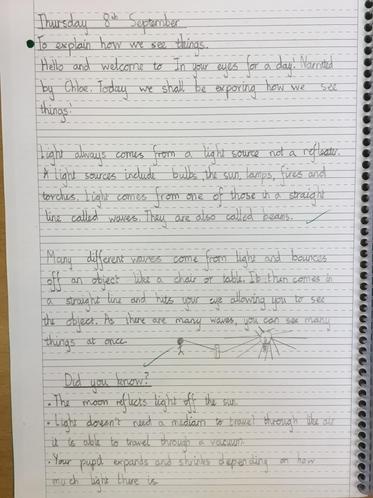 Thursday 8th September
To explain how we see things.
Hello and welcome to In your eyes for a day! Narrated
by Chloe. Today we shall be exporing how we see
things!
Light always comes from a light source not a reflector.
A light sources include bulbs, the sun, lamps, fires and
torches. Light comes from one of those in a straight
line called waves. They are also called beams.
Many different waves come from light and bounces
off an object like a chair or table. It then comes in
a straight line and hits your eye allowing you to see
the object. As there are many waves, you can see many
things at once.
Did you know?
• The moon reflects light off the sun.
• Light doesn't need a medium to travel through the air
it is able to travel through a vacuum.
• Your pupil expands and shrinks depending on how
much light there is.